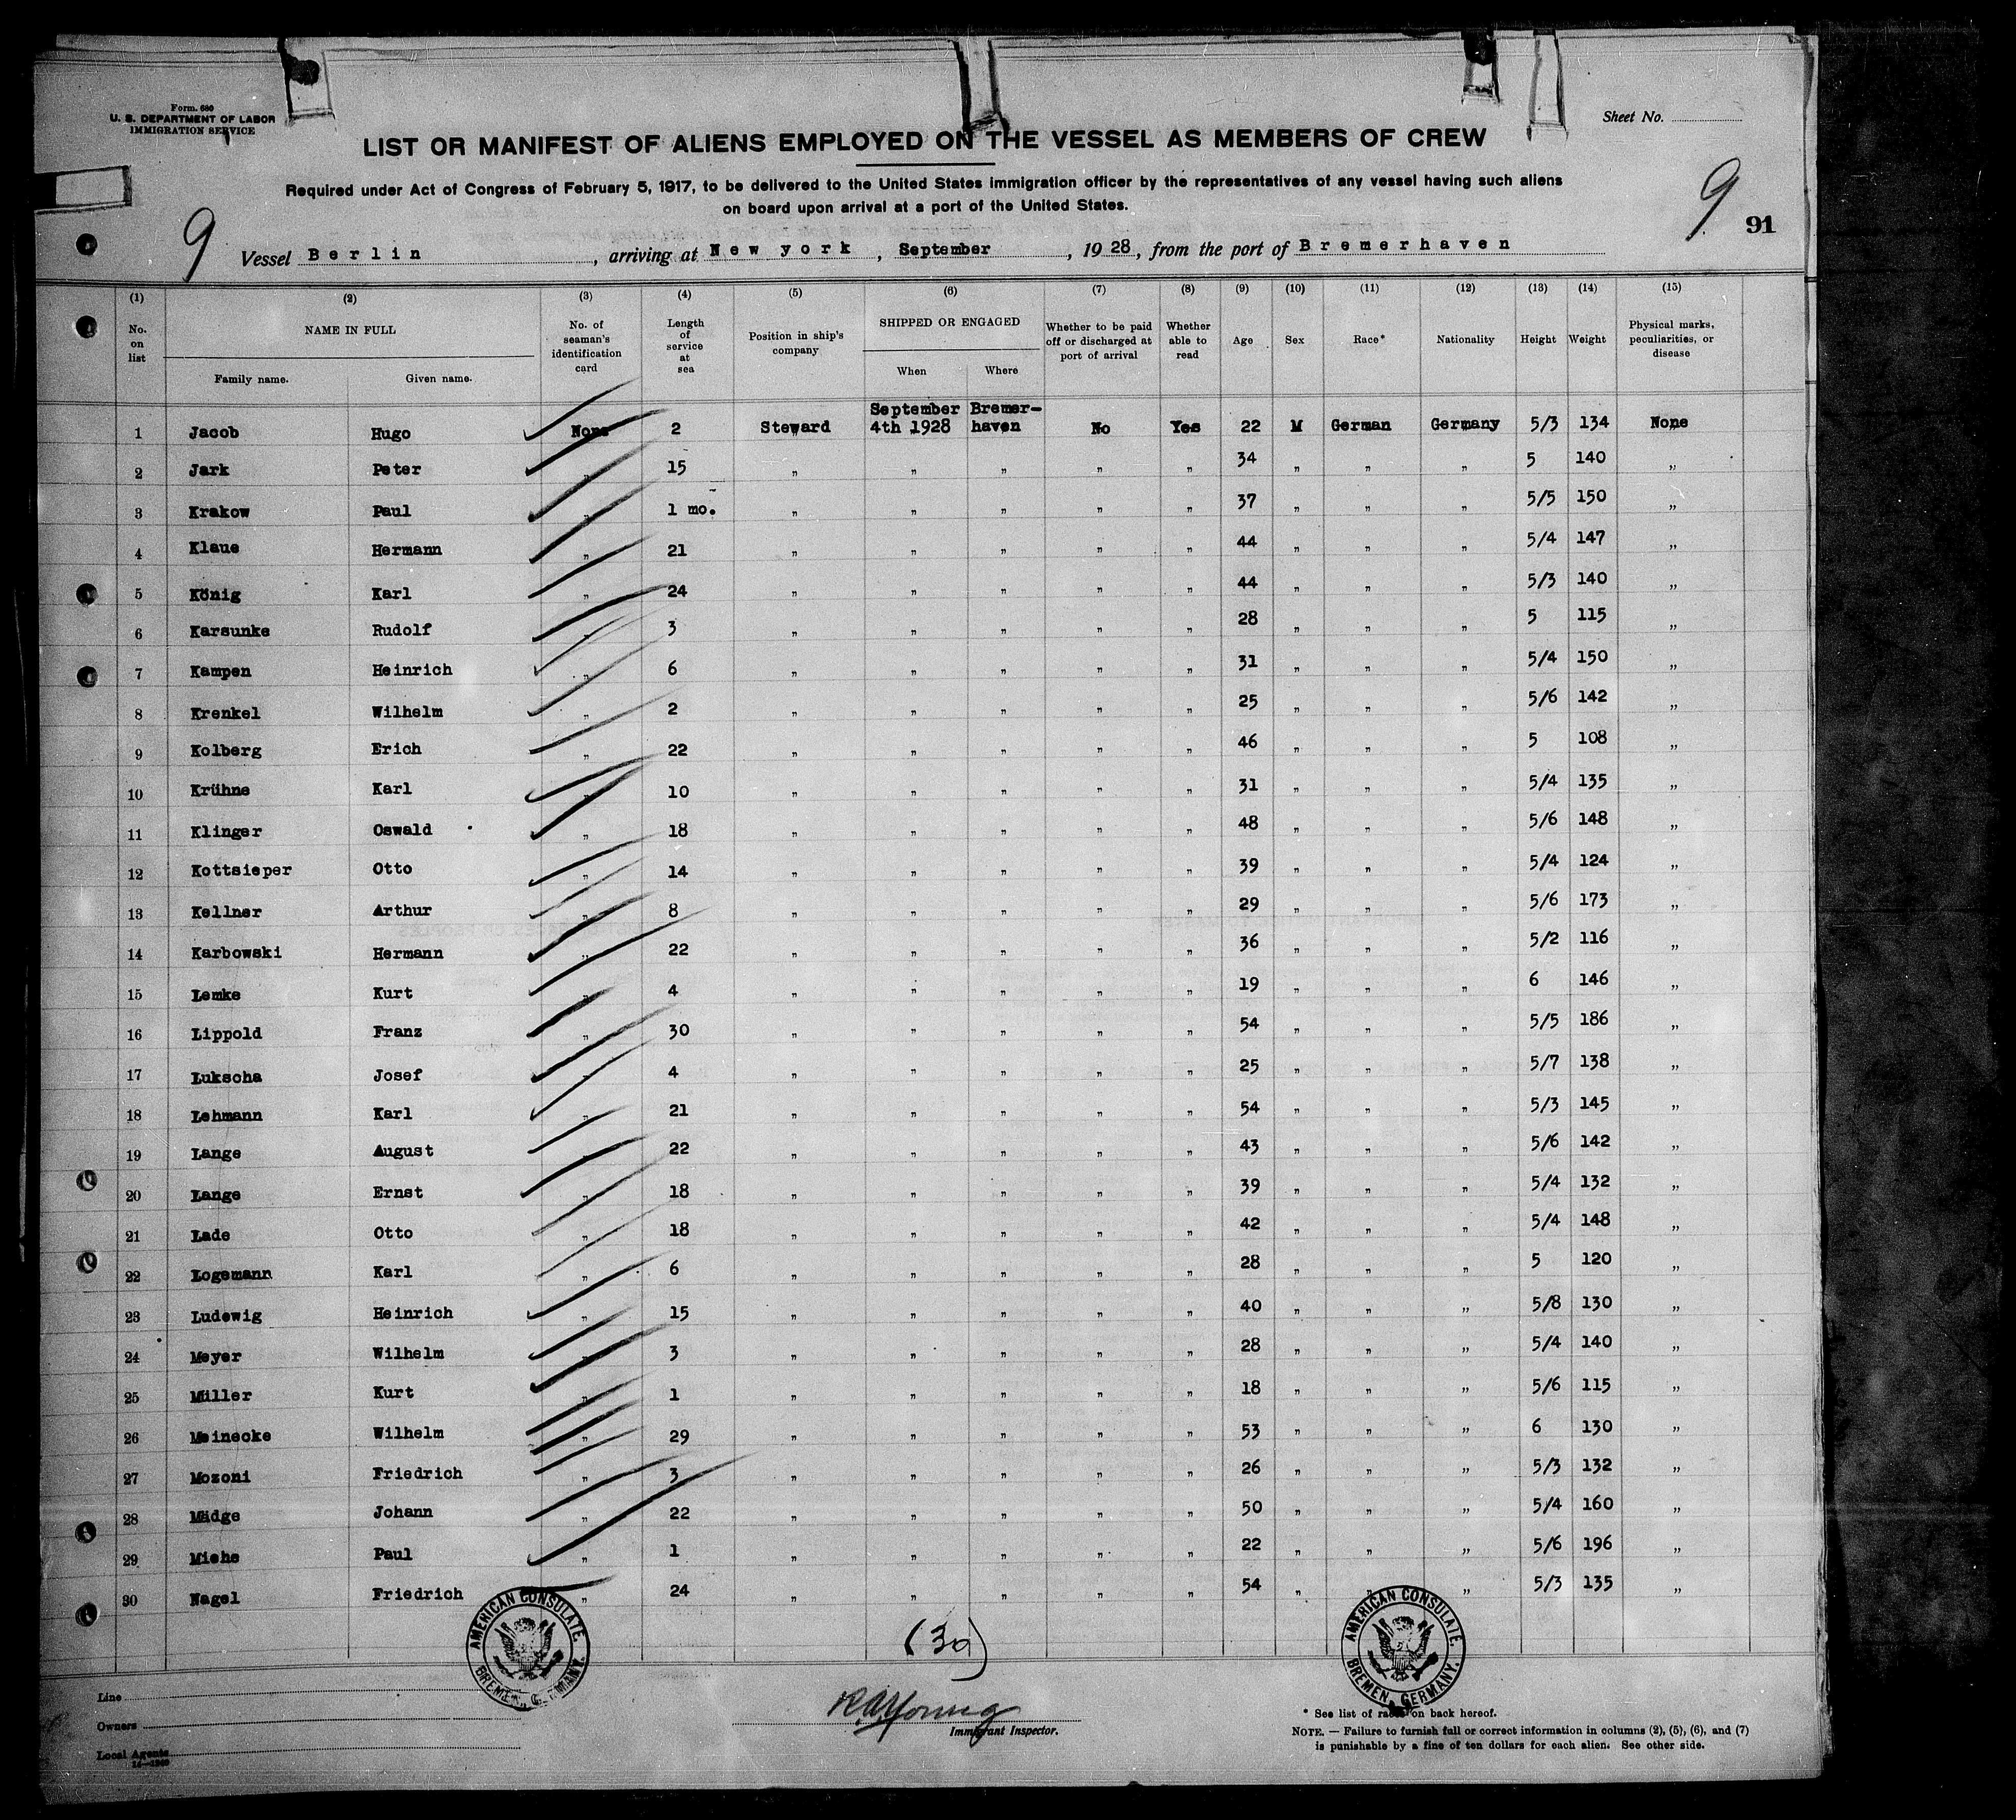 Form. 680
U. S. DEPARTMENT OF LABOR
IMMIGRATION SERVICE
Sheet No.
LIST OR MANIFEST OF ALIENS EMPLOYED ON THE VESSEL AS MEMBERS OF CREW
Required under Act of Congress of February 5, 1917, to be delivered to the United States immigration officer by the representatives of any vessel having such aliens
on board upon arrival at a port of the United States.
9 9 91
Vessel Berlin, arriving at New york, September, 1928, from the port of Bremerhaven
(1) (2) (3) (4) (5) (6) (7) (8) (9) (10) (11) (12) (13) (14) (15)
No. on list NAME IN FULL Family name. Given name. No. of seaman's identification card Length of service at sea Position in ship's company SHIPPED OR ENGAGED When Where Whether to be paid off or discharged at port of arrival Whether able to read Age Sex Race* Nationality Height Weight Physical marks, peculiarities, or disease
1 Jacob Hugo None 2 Steward September 4th 1928 Bremer-haven No Yes 22 M German Germany 5/3 134 None
2 Jark Peter " 15 " " " " " 34 " " " 5 140 "
3 Krakow Paul " 1 mo. " " " " " 37 " " " 5/5 150 "
4 Klaue Hermann " 21 " " " " " 44 " " " 5/4 147 "
5 König Karl " 24 " " " " " 44 " " " 5/3 140 "
6 Karsunke Rudolf " 3 " " " " " 28 " " " 5 115 "
7 Kampen Heinrich " 6 " " " " " 31 " " " 5/4 150 "
8 Krenkel Wilhelm " 2 " " " " " 25 " " " 5/6 142 "
9 Kolberg Erich " 22 " " " " " 46 " " " 5 108 "
10 Krühne Karl " 10 " " " " " 31 " " " 5/4 135 "
11 Klinger Oswald " 18 " " " " " 48 " " " 5/6 148 "
12 Kottsieper Otto " 14 " " " " " 39 " " " 5/4 124 "
13 Kellner Arthur " 8 " " " " " 29 " " " 5/6 173 "
14 Karbowski Hermann " 22 " " " " " 36 " " " 5/2 116 "
15 Lemke Kurt " 4 " " " " " 19 " " " 6 146 "
16 Lippold Franz " 30 " " " " " 54 " " " 5/5 186 "
17 Lukscha Josef " 4 " " " " " 25 " " " 5/7 138 "
18 Lehmann Karl " 21 " " " " " 54 " " " 5/3 145 "
19 Lange August " 22 " " " " " 43 " " " 5/6 142 "
20 Lange Ernst " 18 " " " " " 39 " " " 5/4 132 "
21 Lade Otto " 18 " " " " " 42 " " " 5/4 148 "
22 Logemann Karl " 6 " " " " " 28 " " " 5 120 "
23 Ludewig Heinrich " 15 " " " " " 40 " " " 5/8 130 "
24 Meyer Wilhelm " 3 " " " " " 28 " " " 5/4 140 "
25 Müller Kurt " 1 " " " " " 18 " " " 5/6 115 "
26 Meinecke Wilhelm " 29 " " " " " 53 " " " 6 130 "
27 Mozoni Friedrich " 3 " " " " " 26 " " " 5/3 132 "
28 Mädge Johann " 22 " " " " " 50 " " " 5/4 160 "
29 Miehe Paul " 1 " " " " " 22 " " " 5/6 196 "
30 Nagel Friedrich " 24 " " " " " 54 " " " 5/3 135 "
AMERICAN CONSULATE. BREMEN, GERMANY.
(30)
AMERICAN CONSULATE. BREMEN, GERMANY.
Line
Owners
Local Agents
R.A. Young
Immigrant Inspector.
* See list of races on back hereof.
NOTE. — Failure to furnish full or correct information in columns (2), (5), (6), and (7)
is punishable by a fine of ten dollars for each alien. See other side.